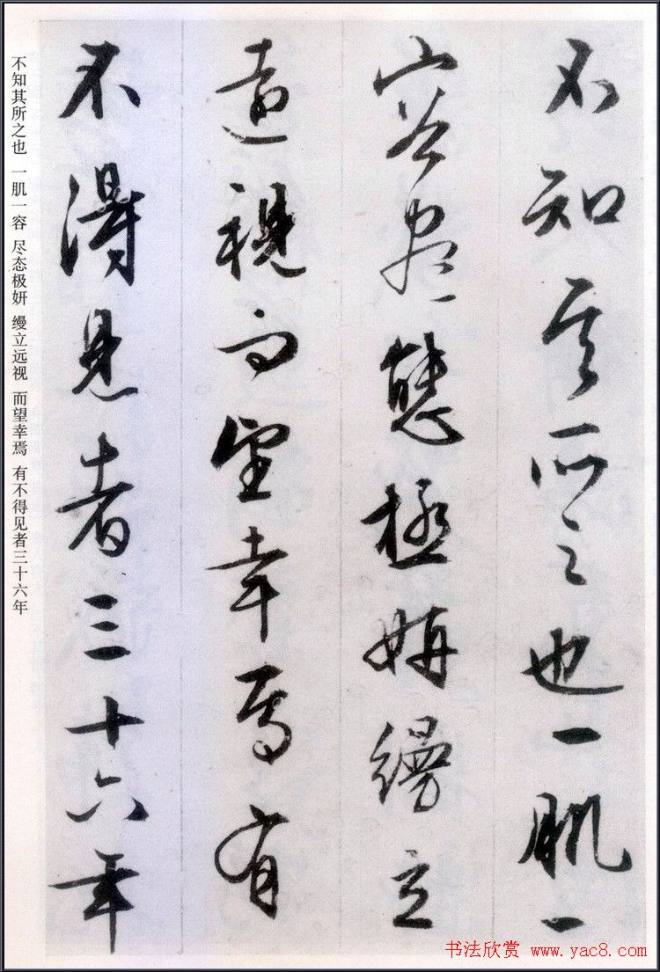 不知其所之也一肌一
容盡態極妍縵立
遠視而望幸焉有
不得見者三十六年
不知其所之也 一肌一容 尽态极妍 缦立远视 而望幸焉 有不得见者三十六年
书法欣赏 www.yac8.com